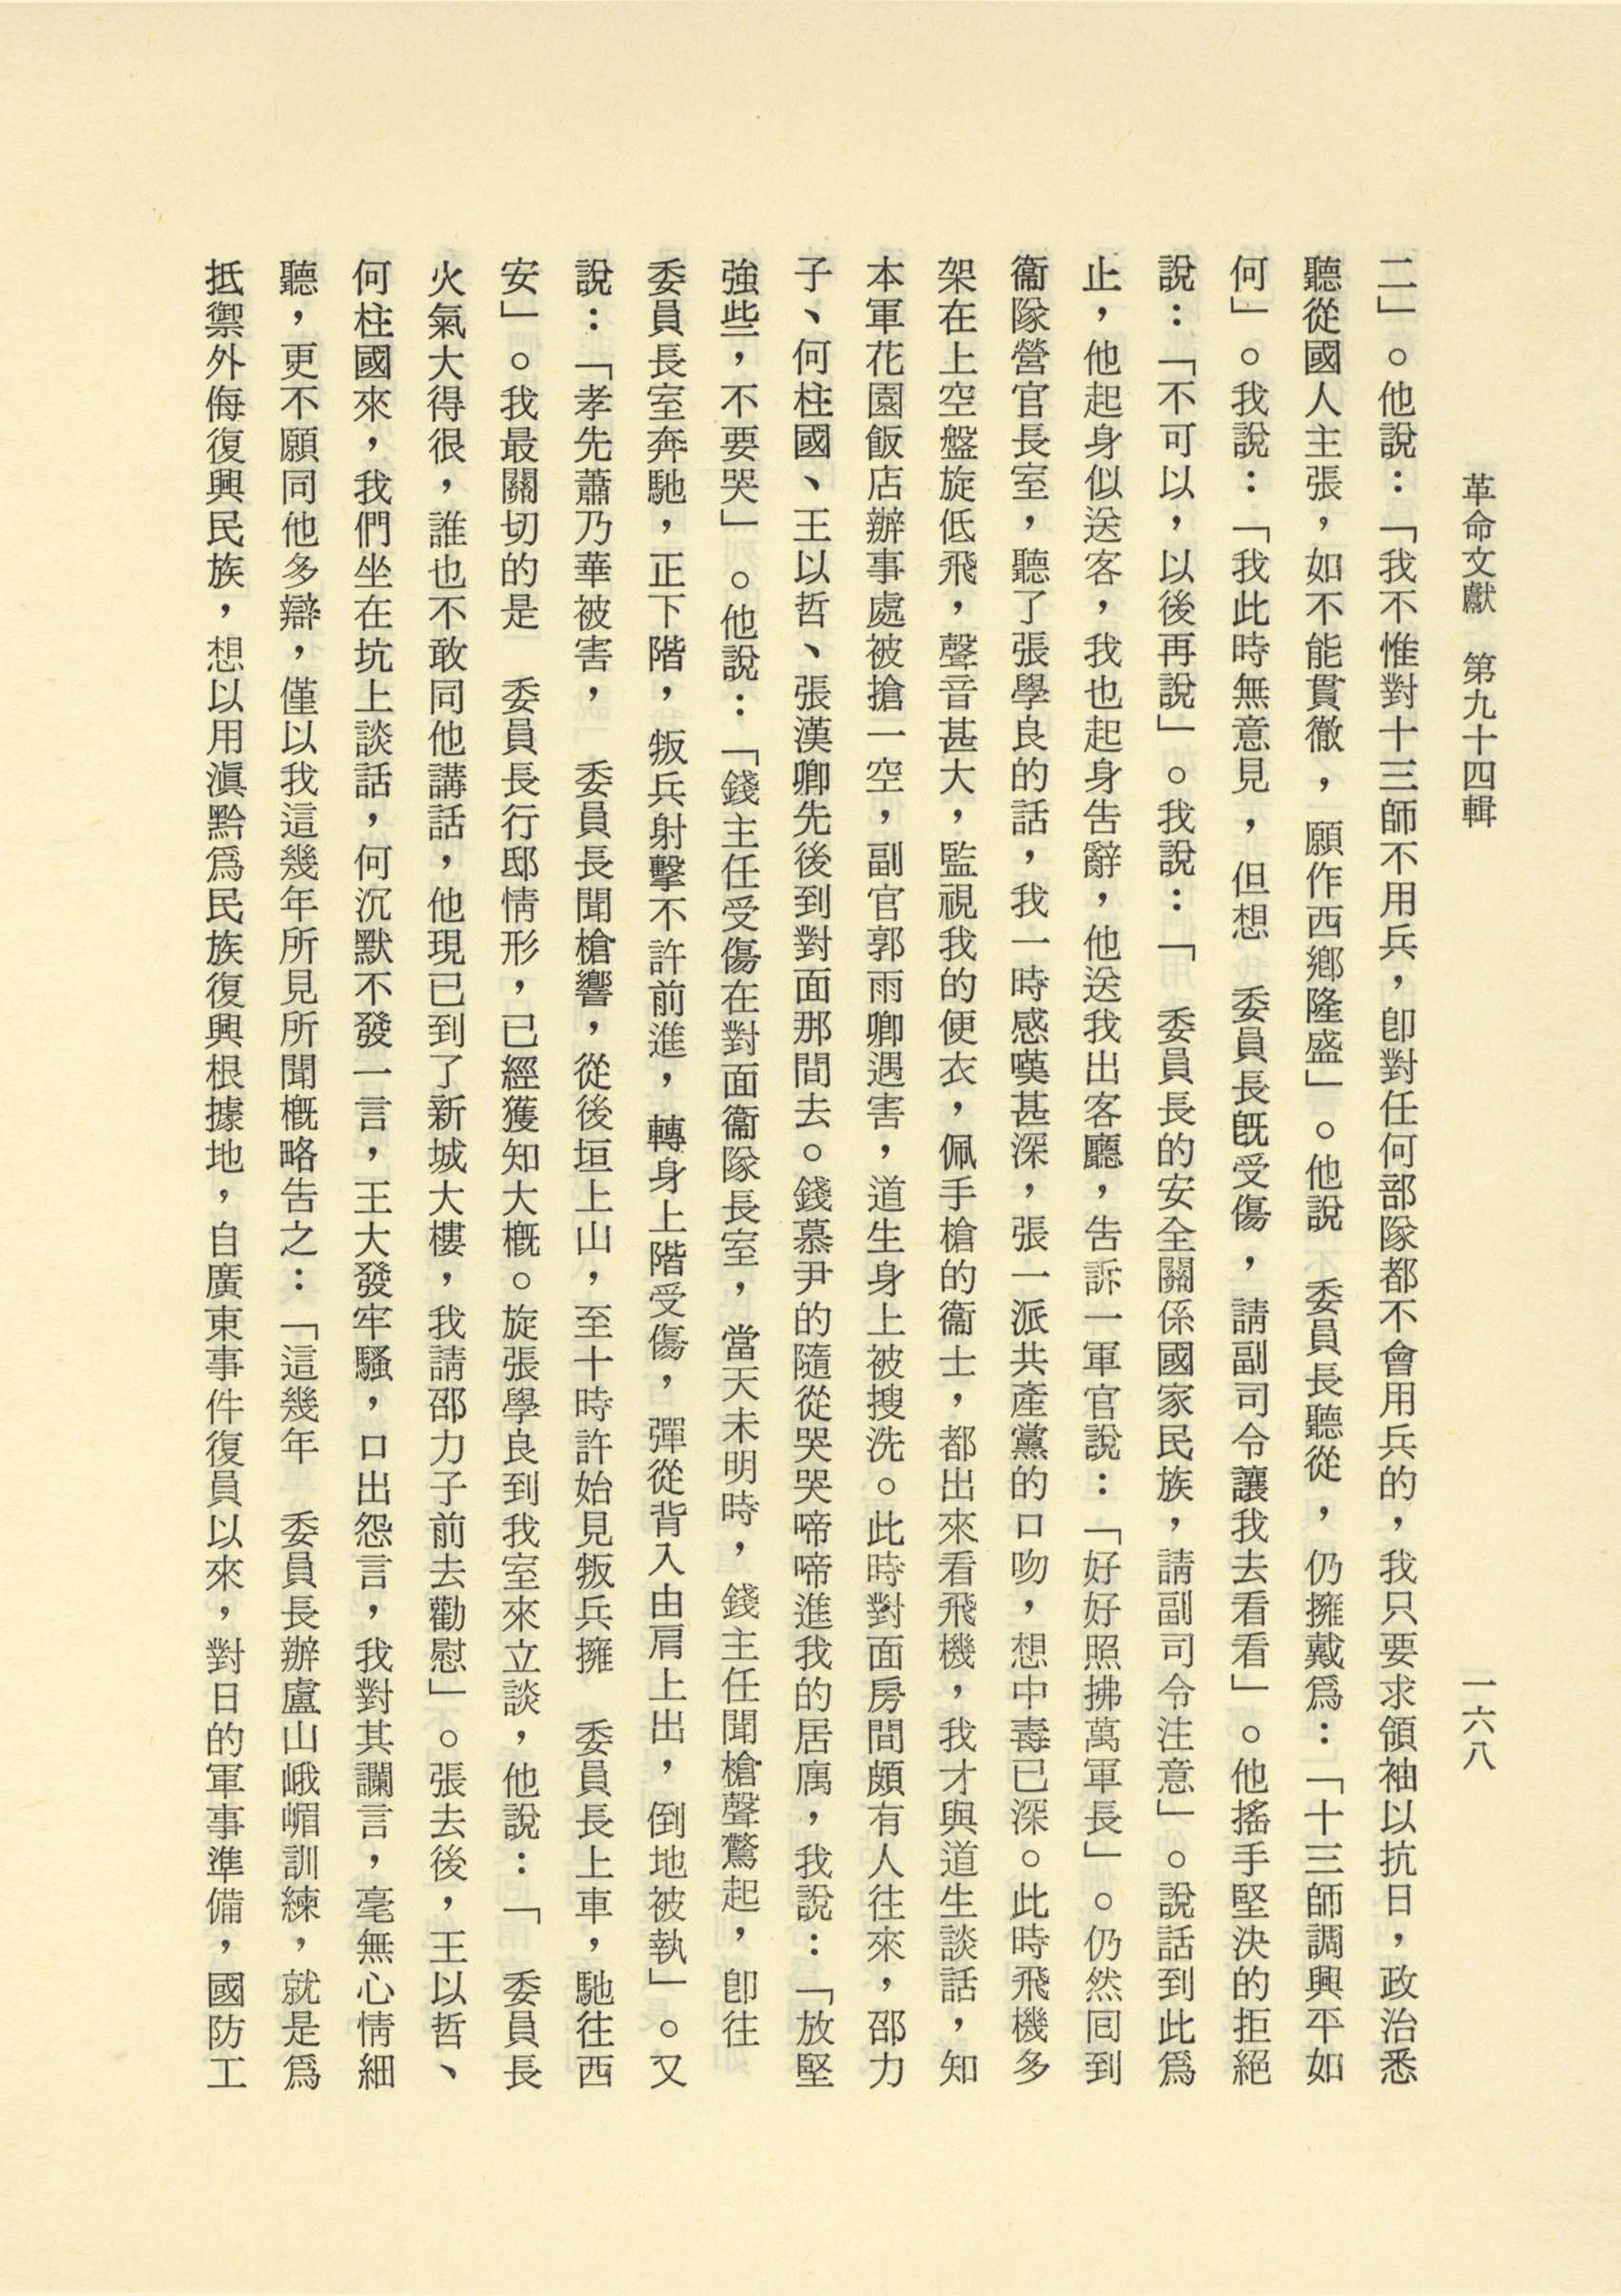 革命文獻　第九十四輯
一六八
二」。他說：「我不惟對十三師不用兵，卽對任何部隊都不會用兵的，我只要求領袖以抗日，政治悉
聽從國人主張，如不能貫徹，願作西鄕隆盛」。他說　委員長聽從，仍擁戴爲：「十三師調興平如
何」。我說：「我此時無意見，但想　委員長旣受傷，請副司令讓我去看看」。他搖手堅決的拒絕
說：「不可以，以後再說」。我說：「　委員長的安全關係國家民族，請副司令注意」。說話到此爲
止，他起身似送客，我也起身告辭，他送我出客廳，告訴一軍官說：「好好照拂萬軍長」。仍然囘到
衞隊營官長室，聽了張學良的話，我一時感嘆甚深，張一派共產黨的口吻，想中毒已深。此時飛機多
架在上空盤旋低飛，聲音甚大，監視我的便衣，佩手槍的衞士，都出來看飛機，我才與道生談話，知
本軍花園飯店辦事處被搶一空，副官郭雨卿遇害，道生身上被搜洗。此時對面房間頗有人往來，邵力
子、何柱國、王以哲、張漢卿先後到對面那間去。錢慕尹的隨從哭哭啼啼進我的居厲，我說：「放堅
強些，不要哭」。他說：「錢主任受傷在對面衞隊長室，當天未明時，錢主任聞槍聲驚起，卽往
委員長室奔馳，正下階，叛兵射擊不許前進，轉身上階受傷，彈從背入由肩上出，倒地被執」。又
說：「孝先蕭乃華被害，　委員長聞槍響，從後垣上山，至十時許始見叛兵擁　委員長上車，馳往西
安」。我最關切的是　委員長行邸情形，已經獲知大槪。旋張學良到我室來立談，他說：「　委員長
火氣大得很，誰也不敢同他講話，他現已到了新城大樓，我請邵力子前去勸慰」。張去後，王以哲、
何柱國來，我們坐在坑上談話，何沉默不發一言，王大發牢騷，口出怨言，我對其讕言，毫無心情細
聽，更不願同他多辯，僅以我這幾年所見所聞槪略告之：「這幾年　委員長辦盧山峨嵋訓練，就是爲
抵禦外侮復興民族，想以用滇黔爲民族復興根據地，自廣東事件復員以來，對日的軍事準備，國防工